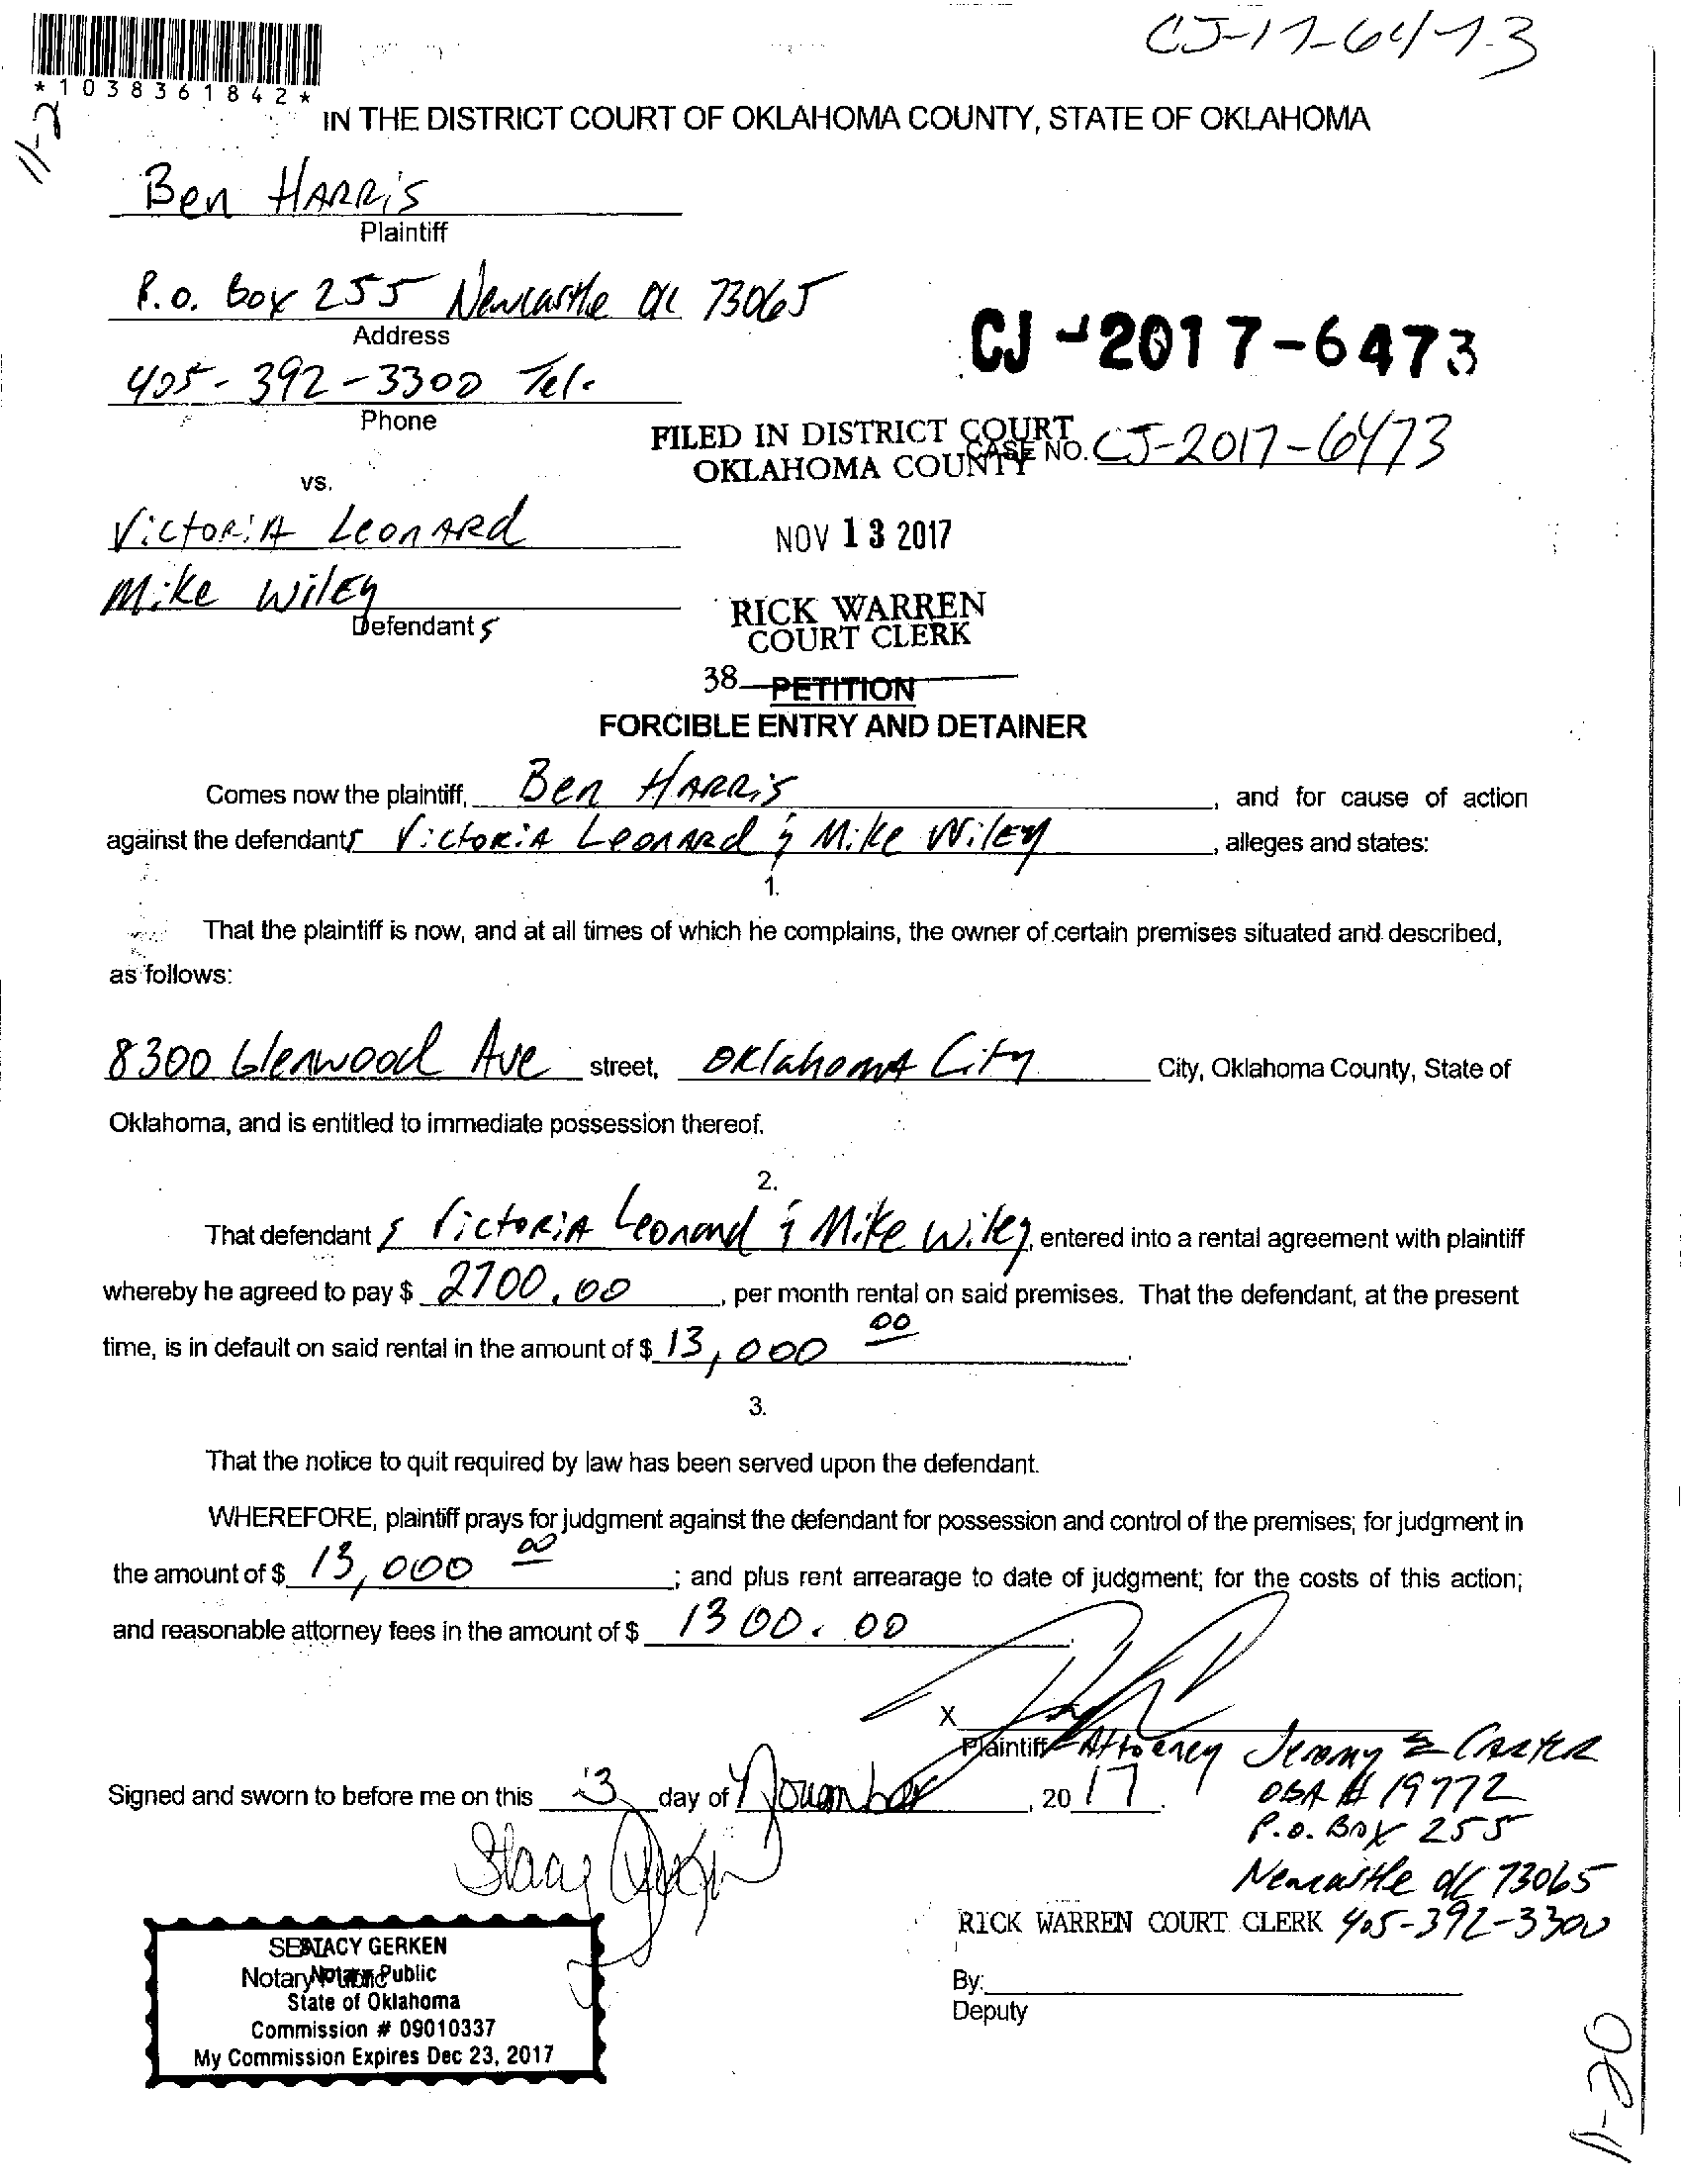 CJ-17-6473
*1038361842*
11-2
IN THE DISTRICT COURT OF OKLAHOMA COUNTY, STATE OF OKLAHOMA
Ben HARRiS
Plaintiff
P.O. Box 255 Newcastle OK 73065
Address
CJ-2017-6473
405-392-3300 Tel.
Phone
FILED IN DISTRICT COURT
OKLAHOMA COUNTY
CASE NO. CJ-2017-6473
vs.
VictoRiA LeonARd
NOV 13 2017
Mike WilEy
Defendants
RICK WARREN
COURT CLERK
38
PETITION
FORCIBLE ENTRY AND DETAINER
Comes now the plaintiff, Ben HARRiS, and for cause of action
against the defendants VictoRiA LeonARd & Mike WilEy, alleges and states:
1.
That the plaintiff is now, and at all times of which he complains, the owner of certain premises situated and described,
as follows:
8300 Glenwood Ave street, OKlahomA City City, Oklahoma County, State of
Oklahoma, and is entitled to immediate possession thereof.
2.
That defendant s VictoRiA Leonard & Mike Wiley, entered into a rental agreement with plaintiff
whereby he agreed to pay $ 2700.00, per month rental on said premises. That the defendant, at the present
time, is in default on said rental in the amount of $ 13,000 00.
3.
That the notice to quit required by law has been served upon the defendant.
WHEREFORE, plaintiff prays for judgment against the defendant for possession and control of the premises; for judgment in
the amount of $ 13,000 00; and plus rent arrearage to date of judgment; for the costs of this action;
and reasonable attorney fees in the amount of $ 1300.00
X
Plaintiff Attorney Jeremy Z CARTER
Signed and sworn to before me on this 13 day of November, 2017.
OBA # 19772
P.O. Box 255
Newcastle OK 73065
Stacy Gerken
RICK WARREN COURT CLERK 405-392-3300
STACY GERKEN
Notary Public
State of Oklahoma
Commission # 09010337
My Commission Expires Dec 23, 2017
By:
Deputy
11-20